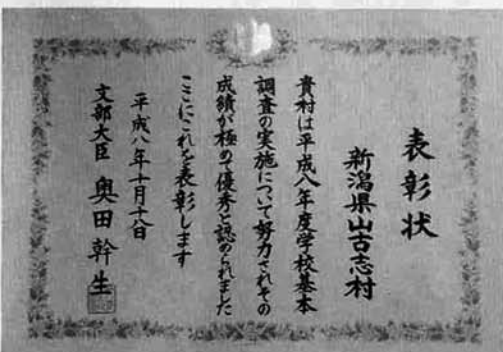 表彰状
新潟県山古志村
貴村は平成八年度学校基本
調査の実施について努力されその
成績が極めて優秀と認められました
ここにこれを表彰します
平成八年十月十八日
文部大臣 奥田幹生